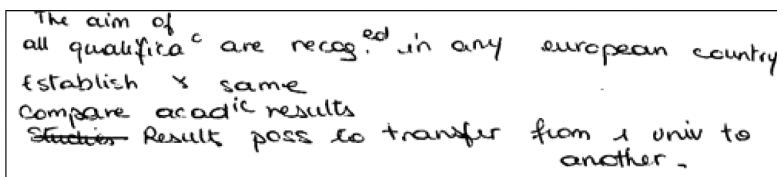 The aim of
all qualifica^c are recog.^ed in any european country
Establish & same
compare acad^ic results
~~Studies~~ Result poss to transfer from 1 univ to
another.